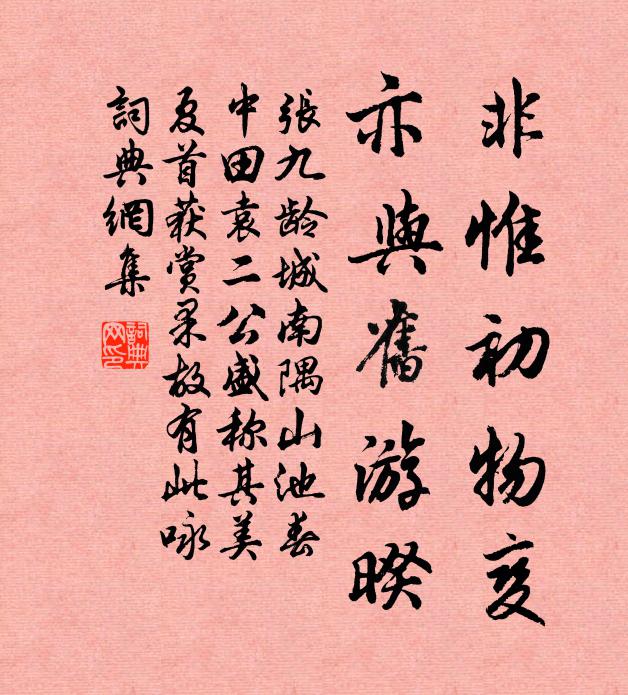 非惟初物变
亦與舊游暌
張九龄城南隅山池春
中田袁二公盛称其美
夏首获賞果故有此咏
詞典網集
詞典网印